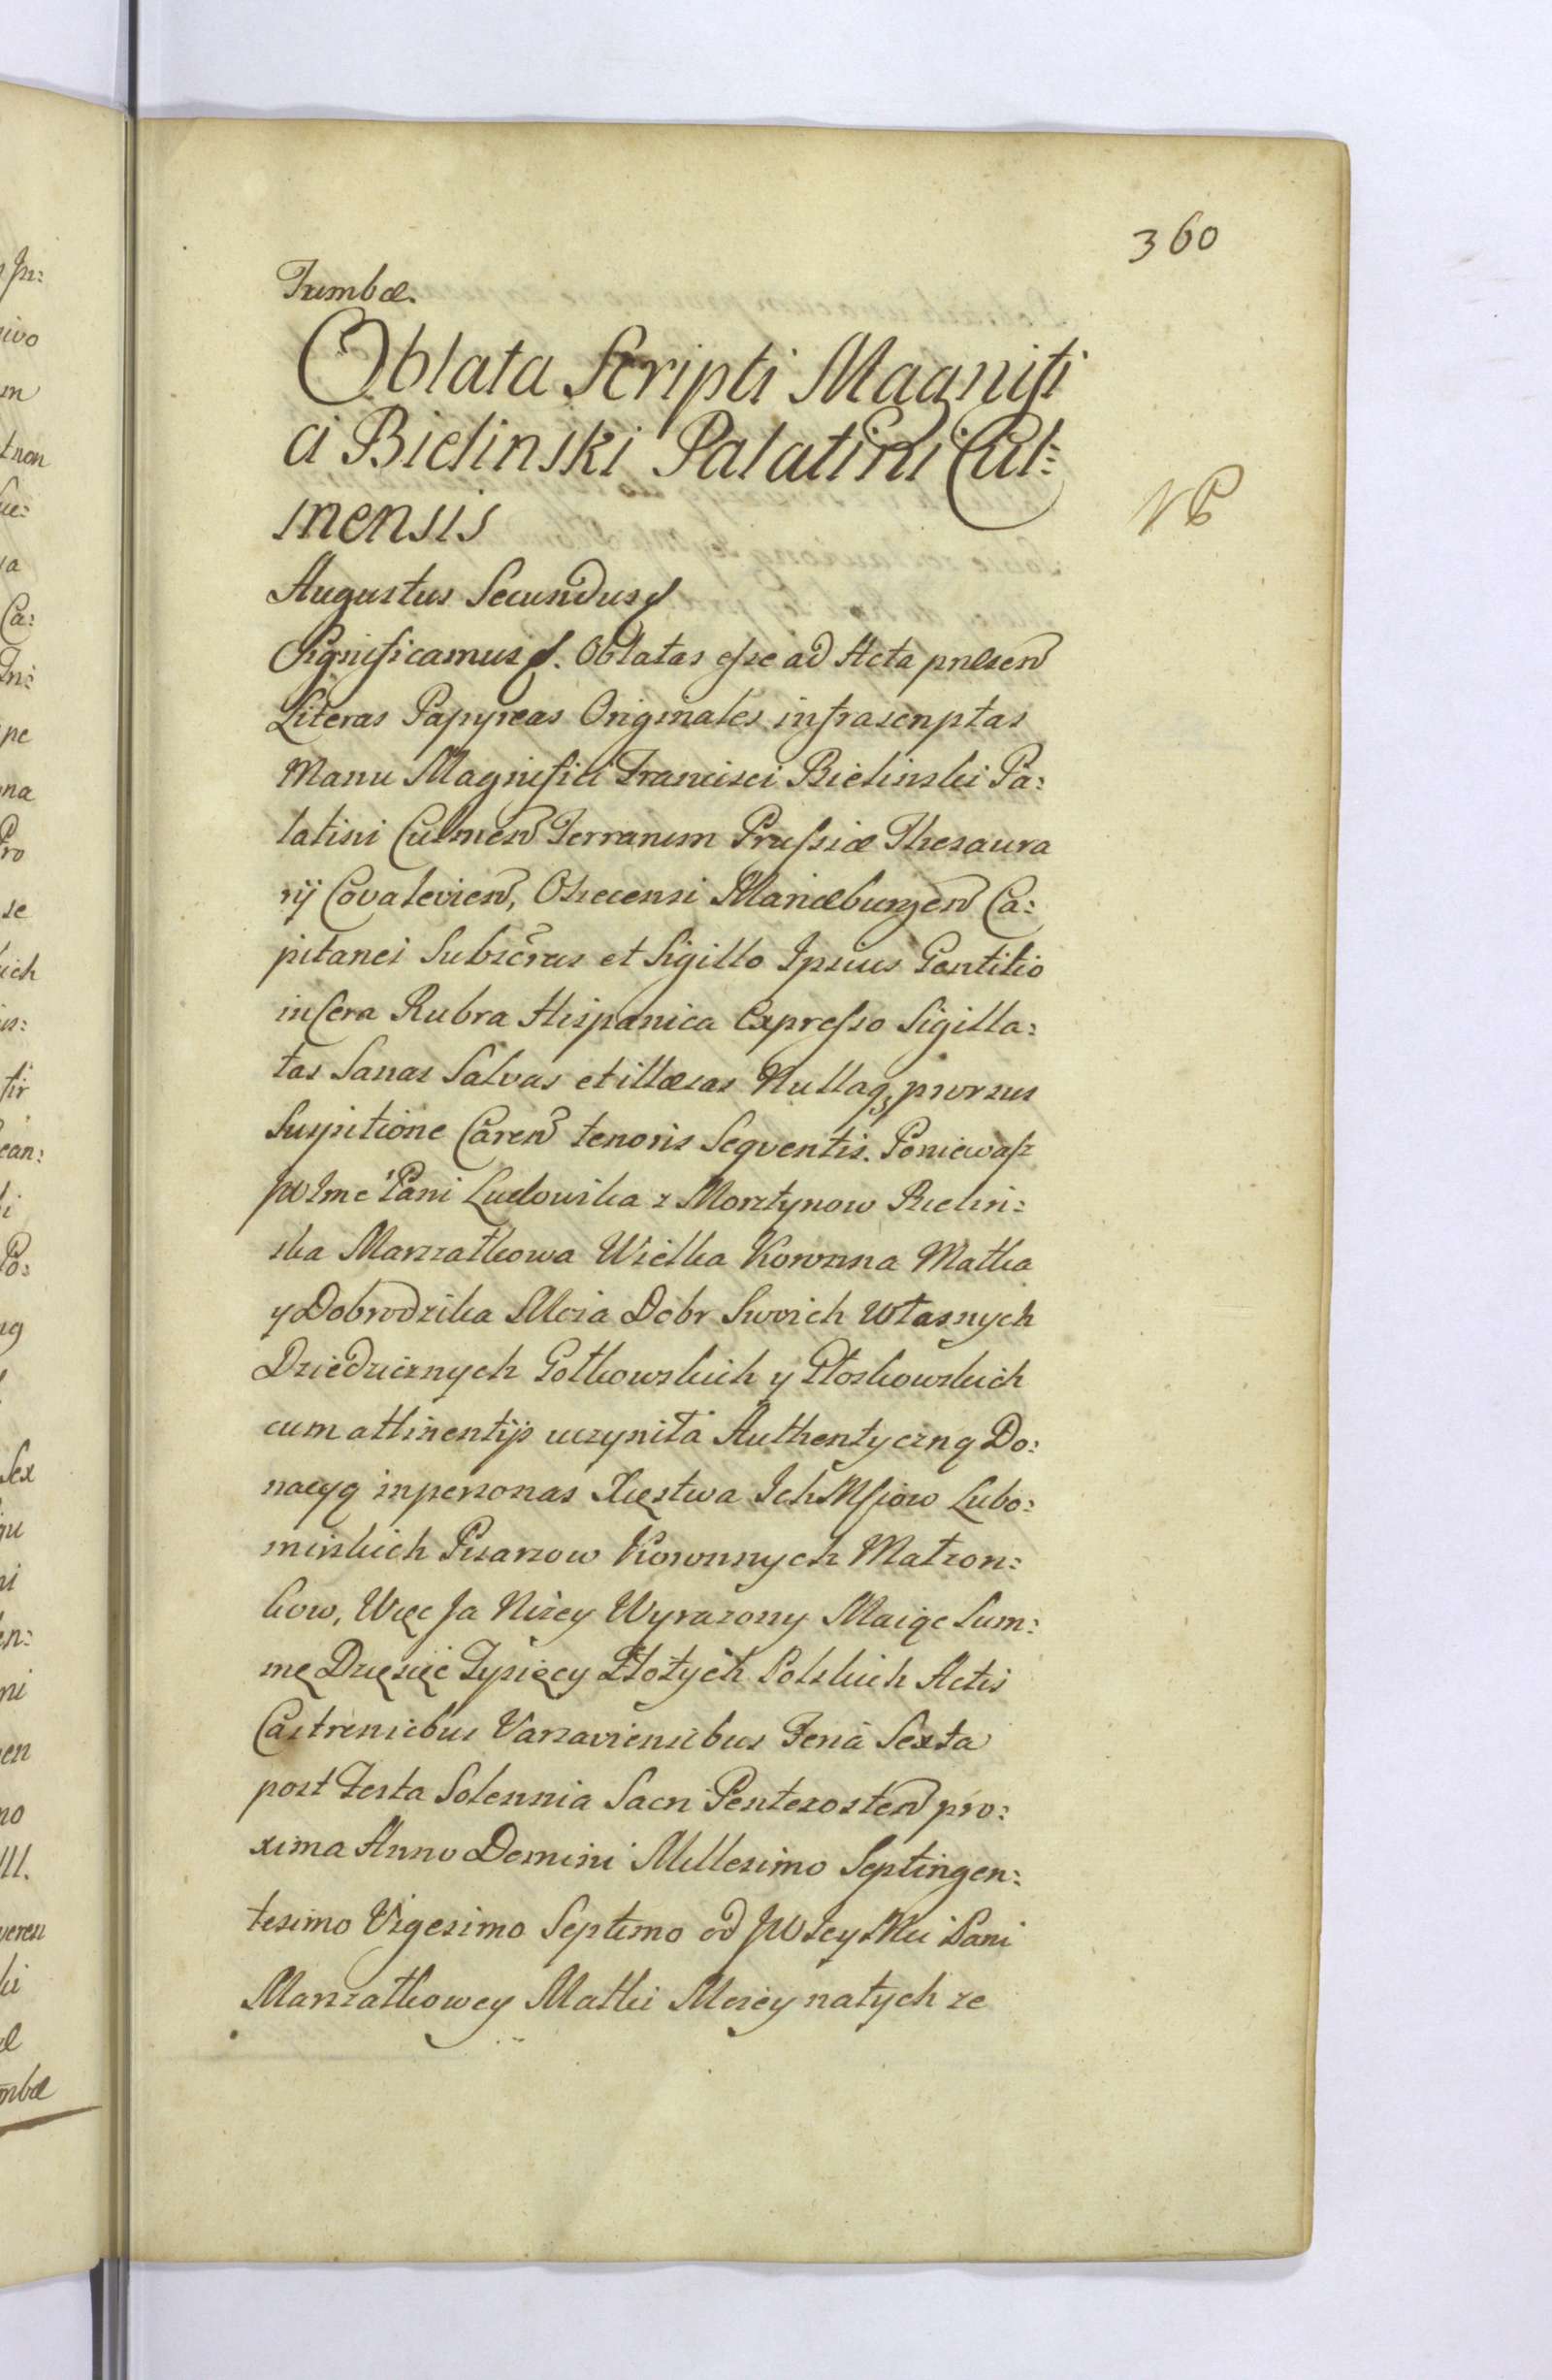 360
Trumbæ.
Oblata Scripti Magnifi
ci Bielinski Palatini Cul:
mensis
NB
Augustus Secundus
Significamus Oblatas esse ad Acta pnlsen
Literas Papyreas Originales infrascriptas
Manu Magnifici Francisci Bielinski Pa:
latini Culmen Terrarum Prussiæ Thesaura
rij Covalevien, Osiecensi Mariæburgen Ca:
pitanei Subscras et Sigillo Ipsius Gentilio
in Cera Rubra Hispanica Expresso Sigilla:
tas Sanas Salvas et illæsas Nullaq prorsus
Suspitione Caren tenoris Seqventis. Poniewasz
JW Jmc Pani Ludowika z Morztynow Bielin:
ska Marszałkowa Wielka Koronna Matka
y Dobrodzika Moia Dobr Swoich Własnych
Dziedzicznych Gołkowskich y Płoskowskich
cum attinentijs uczyniła Authentyczną Do:
nacyą in personas Xięstwa Ich Mſciow Lubo:
mirskich Pisarzow Koronnych Małzon:
kow, Więc Ja Nizey Wyrazony Maiąc Sum:
mę Dzięsięć Tysięcy Złotych Polskich Actis
Castrensibus Varsaviensibus Feria Sexta
post Festa Solennia Sacri Pentecosten pro:
xima Anno Domini Millesimo Septingen:
tesimo Vigesimo Septimo od JW Jey Mci Pani
Marszałkowey Matki Moiey na tych ze